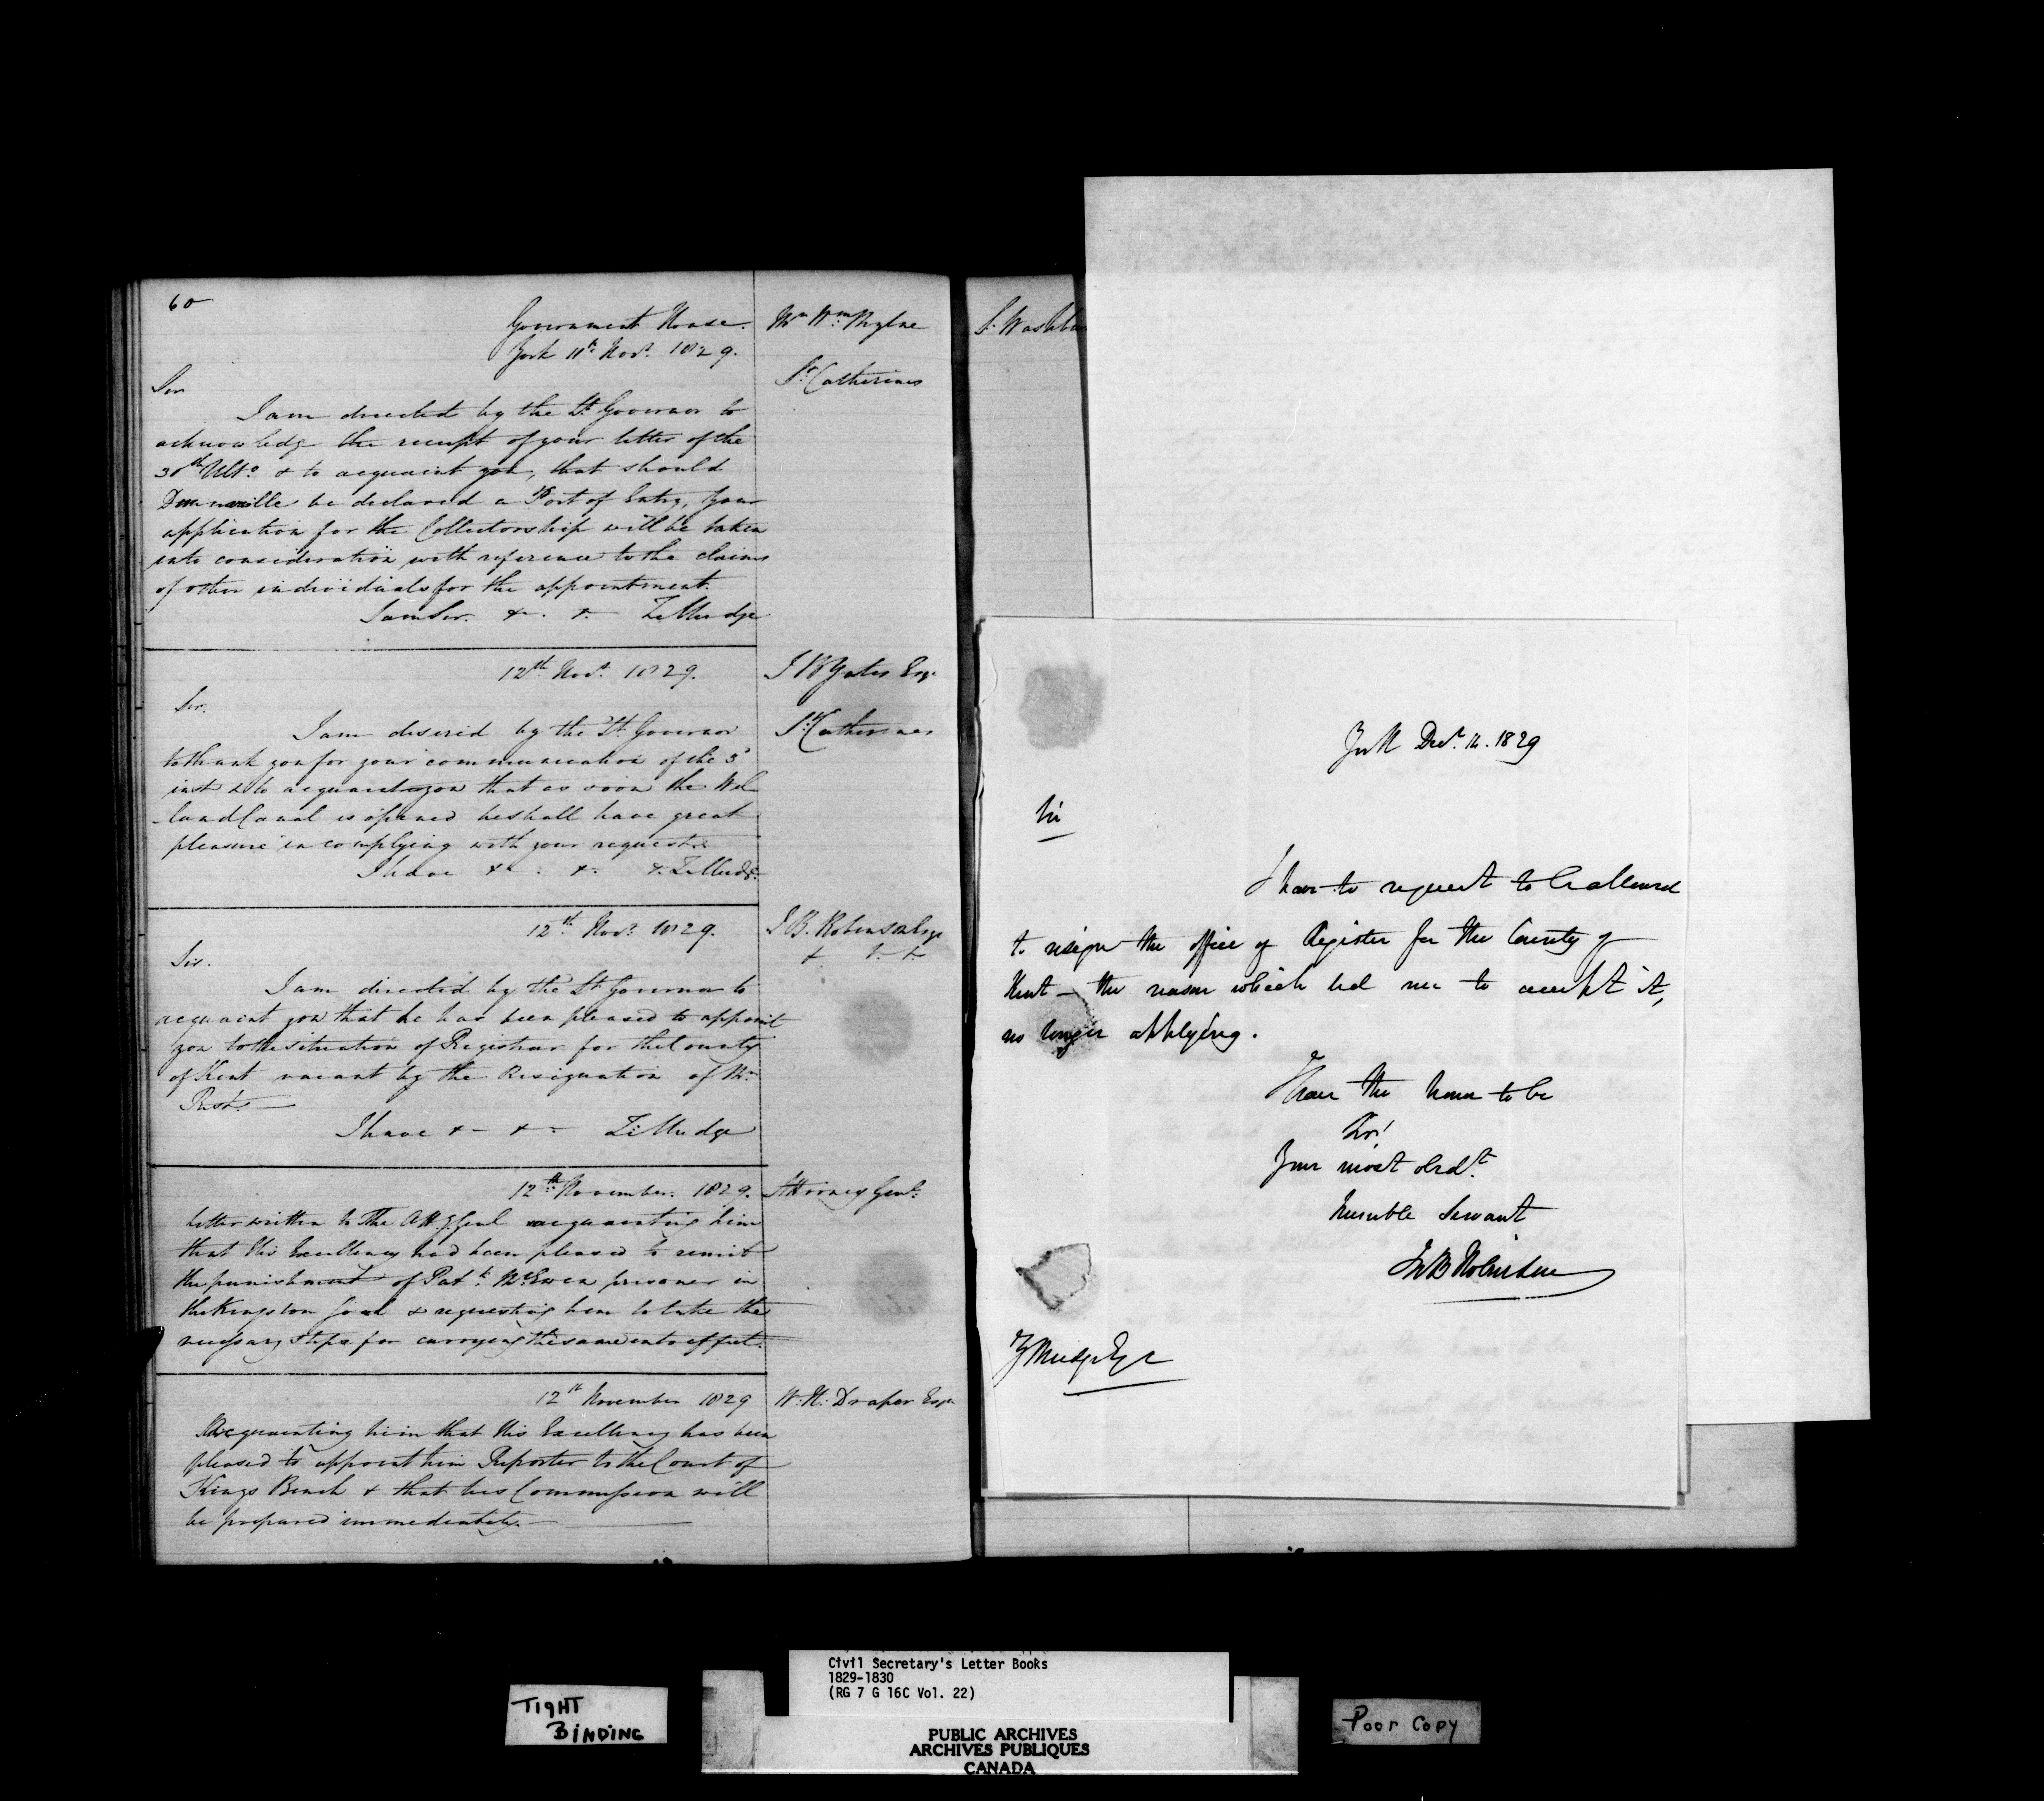 60
Government House.
York 11th Novr. 1829.
Mr. Wm.
St. Catherines
Sir
I am directed by the Lt. Governor to
acknowledge the receipt of your letter of the
30th Ulto. & to acquaint you, that should
Dunnville be declared a Port of Entry, Your
application for the Collectorship will be taken
into consideration with reference to the claims
of other individuals for the appointment.
I am Sir. &. &. Z Mudge
12th Novr. 1829.
J B Yates Esqr.
St. Catherines
Sir.
I am desired by the Lt. Governor
to thank you for your communication of the 3d
inst & to acquaint you that as soon the Wel
land Canal is opened he shall have great
pleasure in complying with your request.
I have &. &. &. Z Mudge.
12th Novr. 1829.
J B. Robinson Esqr
& &. &.
Sir.
I am directed by the Lt. Governor to
acquaint you that he has been pleased to appoint
you to the situation of Registrar for the County
of Kent vacant by the Resignation of Mr.
I have & - & - Z. Mudge
12th November. 1829.
Attorney Genl.
Letter written to The Atty Genl acquainting him
that His Excellency had been pleased to remit
the punishment of Patk. McEwen prisoner in
the Kingston Goal & requesting him to take the
necessary steps for carrying the same into effect.
12th November 1829
W. H. Draper Esqr
Acquainting him that His Excellency has been
pleased to appoint him Reporter to the Court of
Kings Bench & that his Commission will
be prepared immediately.
S. Washbu
York Decr. 14. 1829
Sir
I have to request to be allowed
to resign the office of Register for the County of
Kent — the reason which led me to accept it,
no longer applying.
I have the honor to be
Sir!
Your most obedt.
humble Servant
Jno B Robinson
Z Mudge Esqr
TIGHT
BINDING
Civil Secretary's Letter Books
1829-1830
(RG 7 G 16C Vol. 22)
PUBLIC ARCHIVES
ARCHIVES PUBLIQUES
CANADA
Poor Copy